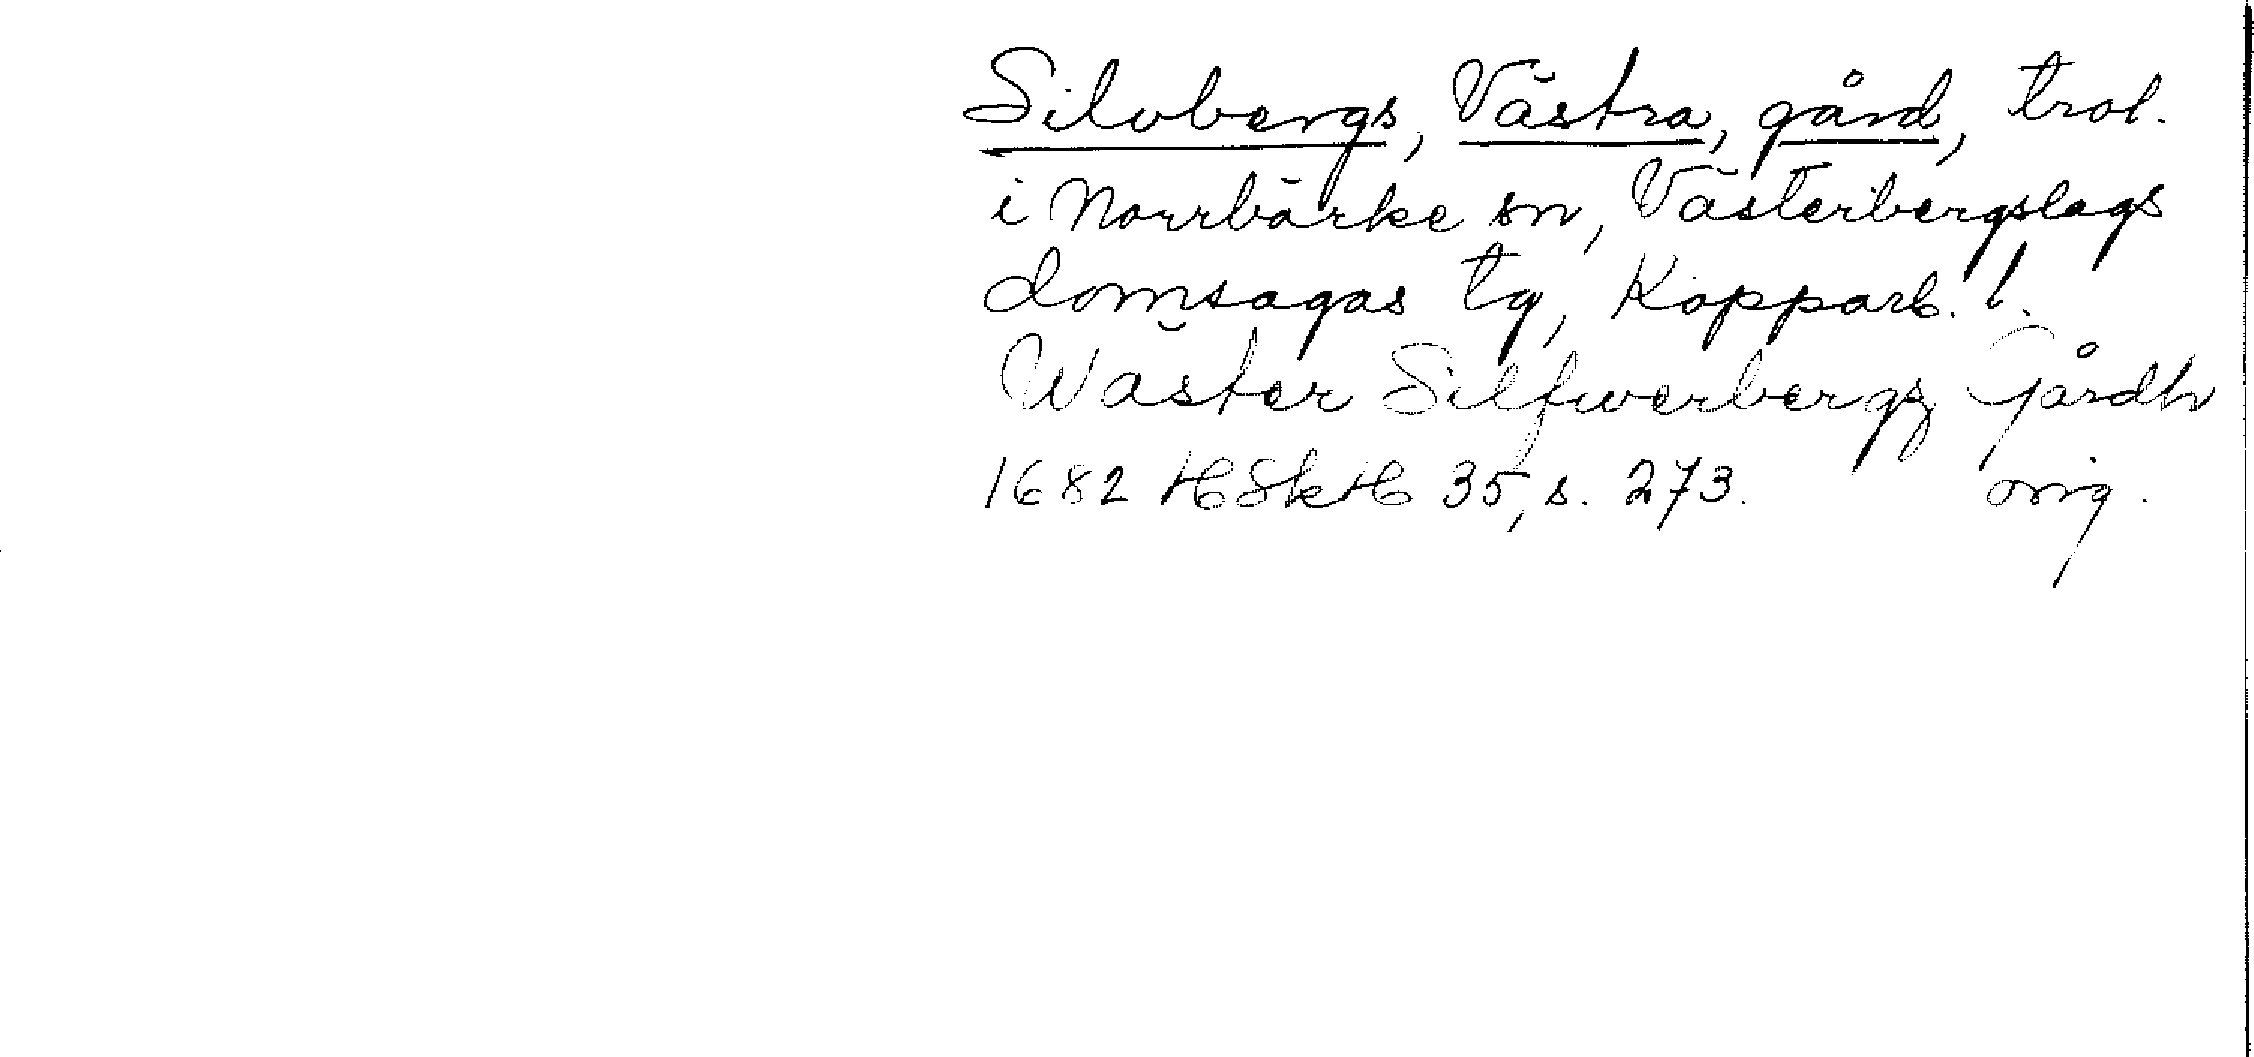 Silvbergs, Västra, gård, trol.
i Norrbärke sn, Västerbergslags
domsagas tg, Kopparb. l.
Wäster Silfwerbergz Gårdh
1682 HSkH 35, s. 273. orig.